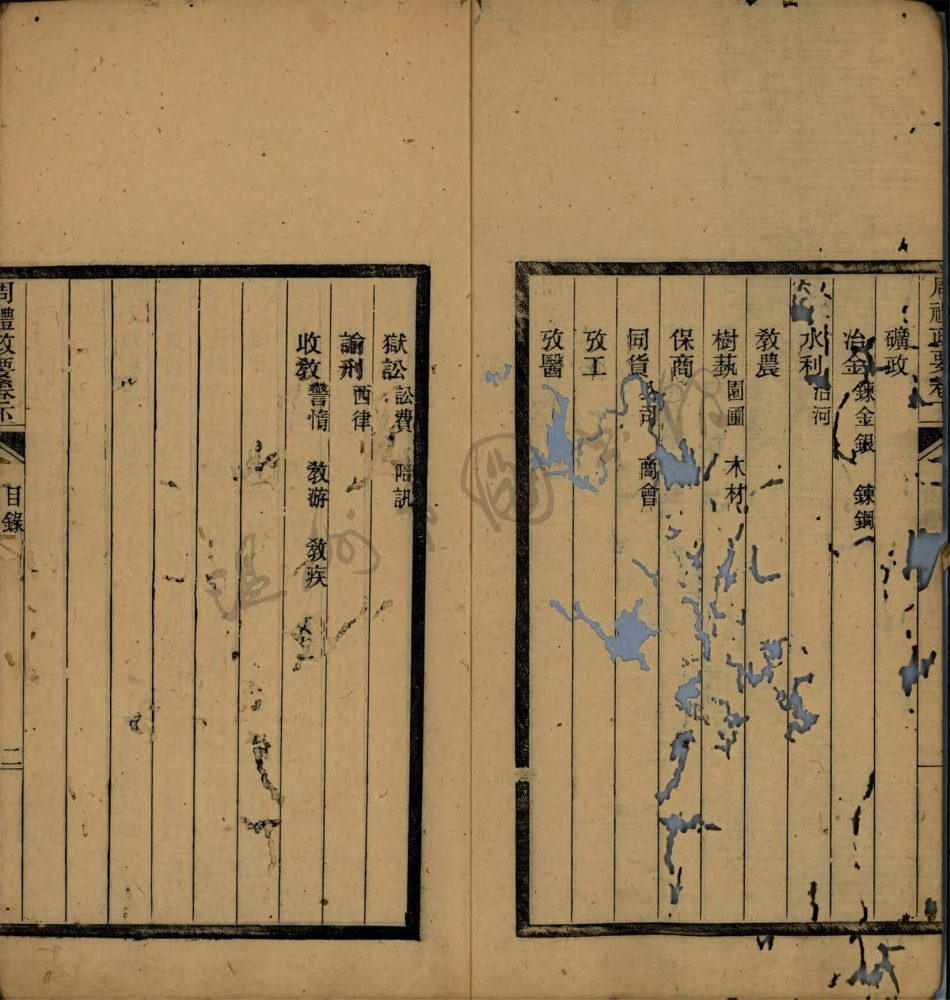 礦政
冶金 鍊金銀 鍊鋼
水利 治河
教農
樹藝 園圃 木材
保商
同貨 公司 商會
攷工
攷醫
獄訟 訟費 陪訊
諭刑 西律
收教 警惰 教游 教疾
周禮政要卷下
目錄
二